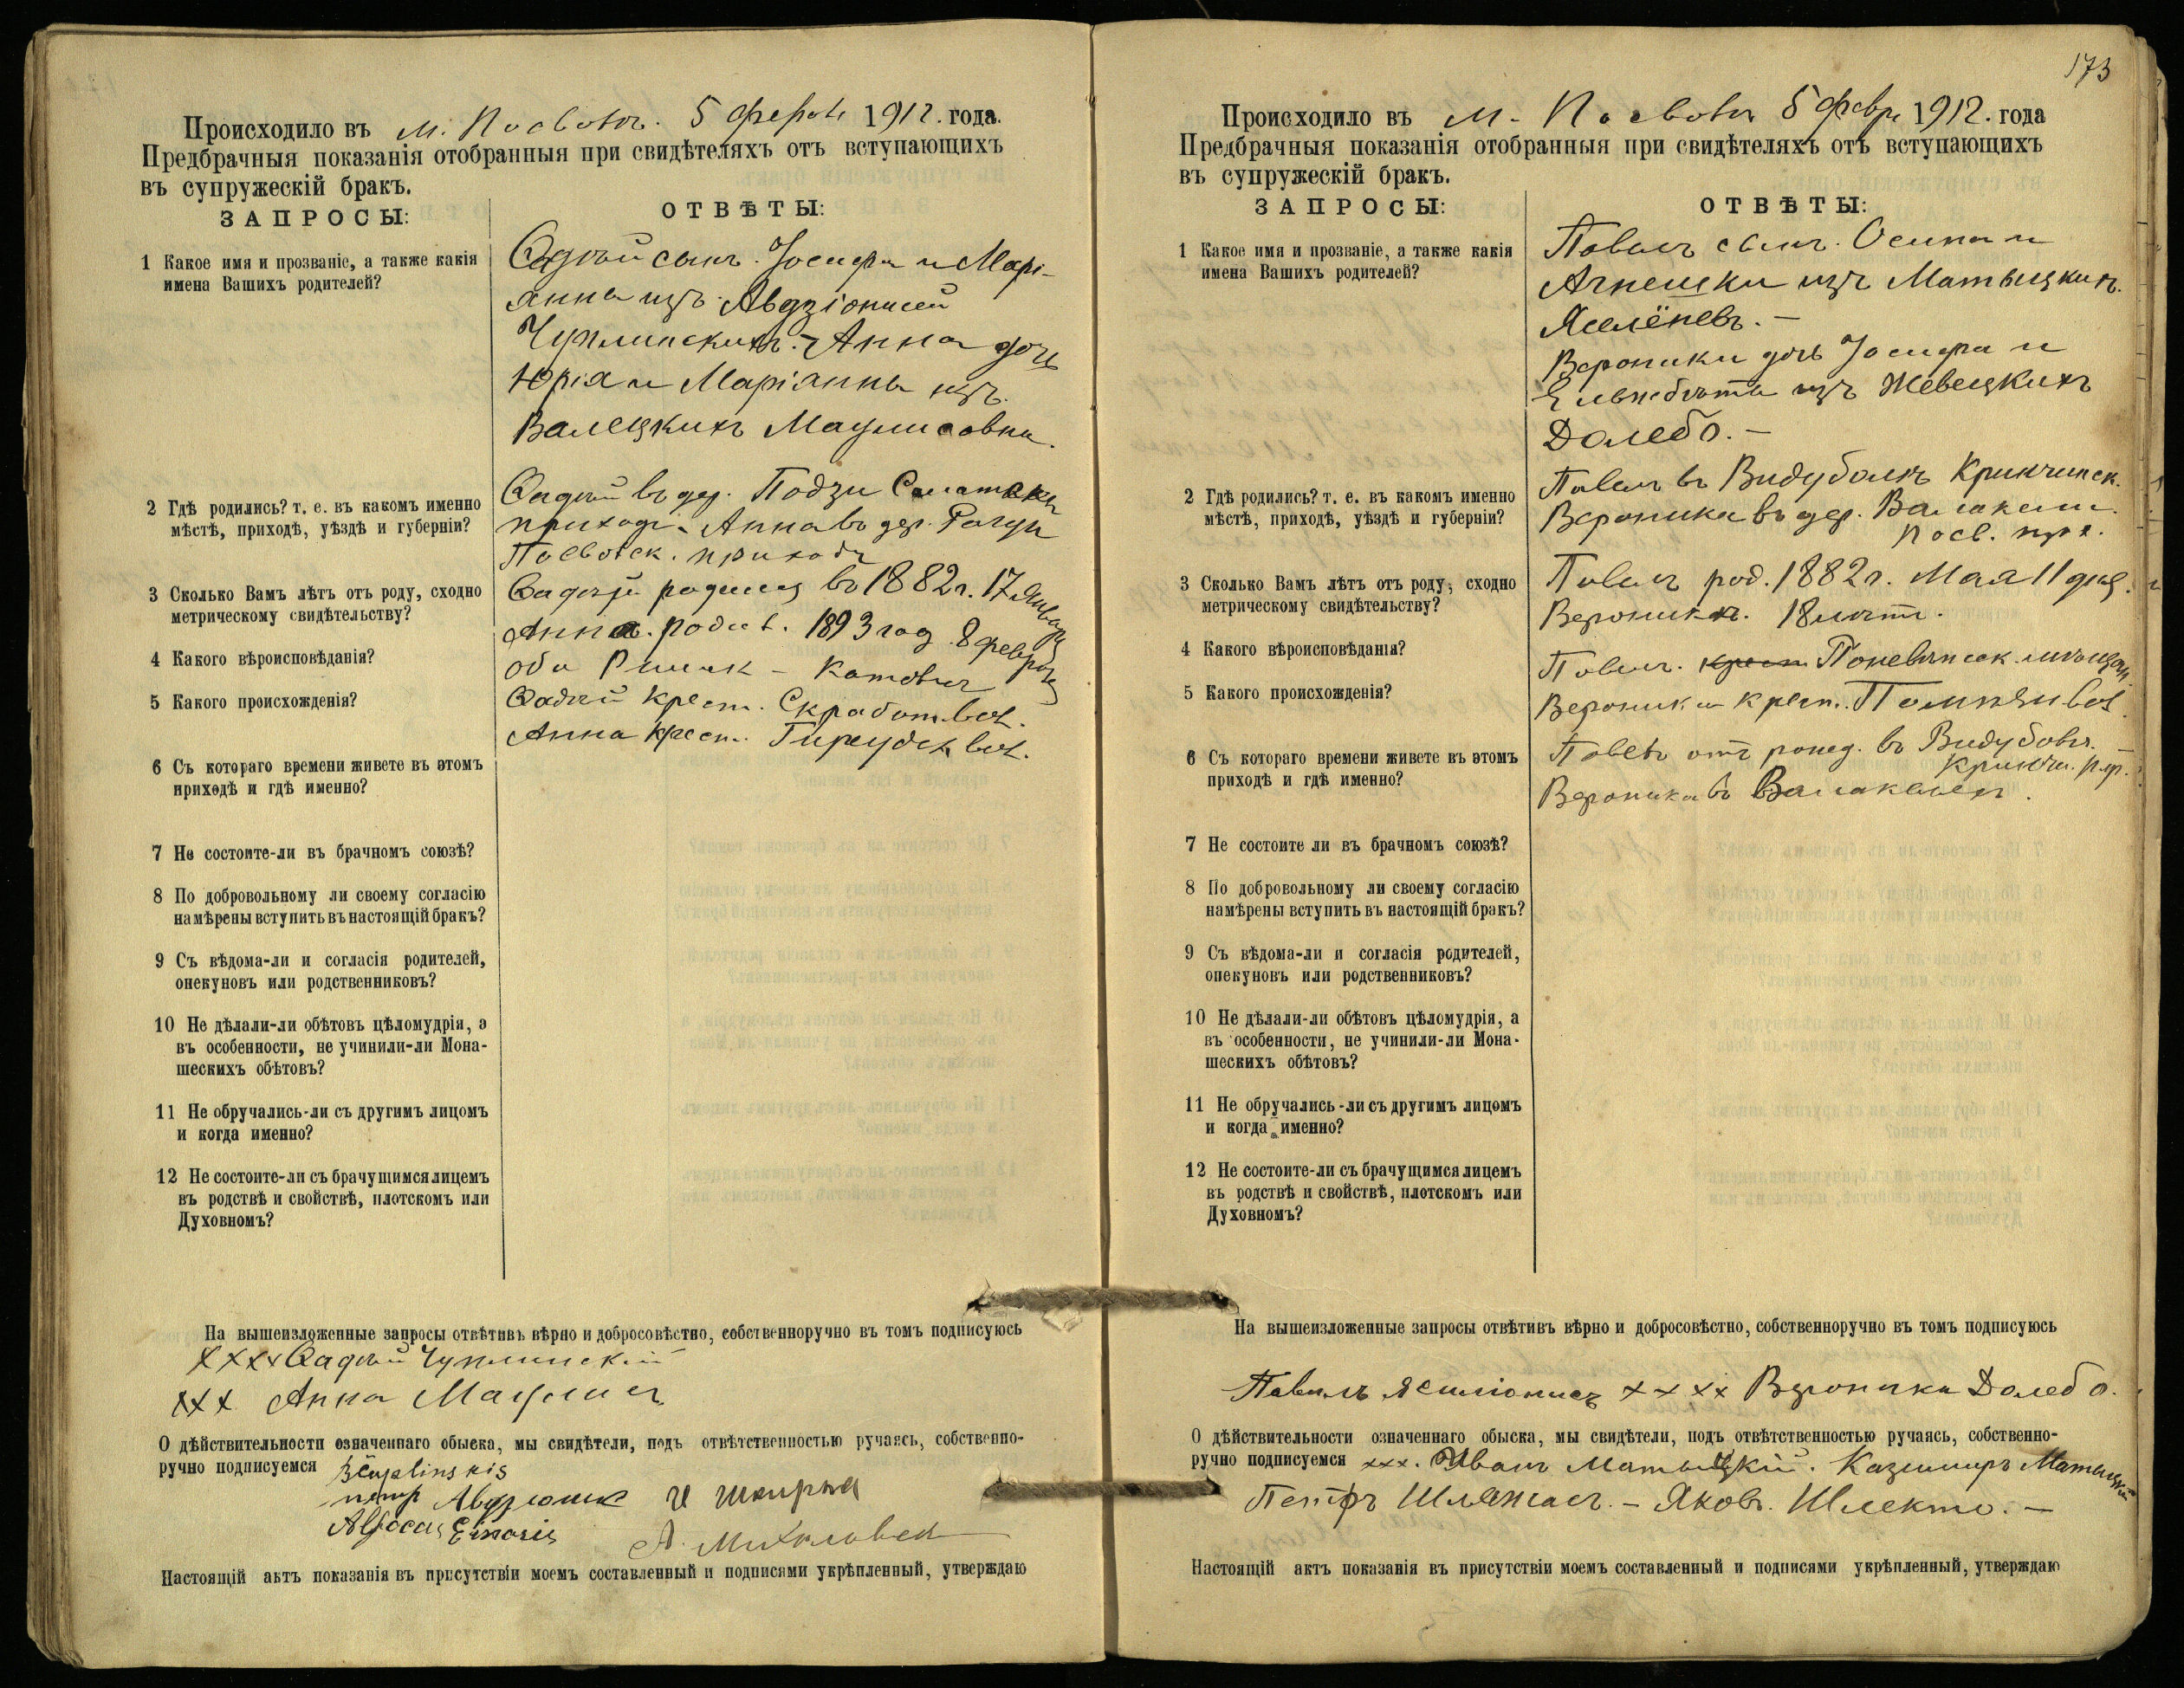 Происходило въ м. Посволь. 5 февр. 1912. года.
Предбрачныя показанія отобранныя при свидѣтеляхъ отъ вступающихъ
въ супружескій бракъ.
ЗАПРОСЫ:
ОТВѢТЫ:
1 Какое имя и прозваніе, а также какія
имена Вашихъ родителей?
сынъ Іосифа и Марі-
анны изъ
Анна дочь
Юрія и Маріанны изъ
Валецкихъ
2 Гдѣ родились? т. е. въ какомъ именно
мѣстѣ, приходѣ, уѣздѣ и губерніи?
въ дер.
прихода. Анна въ дер.
Посвольск. прихода
3 Сколько Вамъ лѣтъ отъ роду, сходно
метрическому свидѣтельству?
родился въ 1882 г. 17 Января
Анна. родил. 1893 год 8 февраля
4 Какого вѣроисповѣданія?
оба Римск - Католич
5 Какого происхожденія?
крест. Скработ. вол.
Анна крест. вол.
6 Съ котораго времени живете въ этомъ
приходѣ и гдѣ именно?
7 Не состоите-ли въ брачномъ союзѣ?
8 По добровольному ли своему согласію
намѣрены вступить въ настоящій бракъ?
9 Съ вѣдома-ли и согласія родителей,
опекуновъ или родственниковъ?
10 Не дѣлали-ли обѣтовъ цѣломудрія, а
въ особенности, не учинили-ли Мона-
шескихъ обѣтовъ?
11 Не обручались-ли съ другимъ лицомъ
и когда именно?
12 Не состоите-ли съ брачущимся лицемъ
въ родствѣ и свойствѣ, плотскомъ или
Духовномъ?
На вышеизложенные запросы отвѣтивъ вѣрно и добросовѣстно, собственноручно въ томъ подписуюсь
xxxx
xxx Анна
О дѣйствительности означеннаго обыска, мы свидѣтели, подъ отвѣтственностью ручаясь, собственно-
ручно подписуемся
Настоящій актъ показанія въ присутствіи моемъ составленный и подписями укрѣпленный, утверждаю
173
Происходило въ м. Посволь 5 февр. 1912. года
Предбрачныя показанія отобранныя при свидѣтеляхъ отъ вступающихъ
въ супружескій бракъ.
ЗАПРОСЫ:
ОТВѢТЫ:
1 Какое имя и прозваніе, а также какія
имена Вашихъ родителей?
Павелъ сынъ. Осипа и
Агнешки изъ Матыцкихъ.
Вероника дочь Іосифа и
изъ Жевецкихъ
Долебо. -
2 Гдѣ родились? т. е. въ какомъ именно
мѣстѣ, приходѣ, уѣздѣ и губерніи?
Павелъ въ Крикчинск.
Вероника въ дер.
Посв. при.
3 Сколько Вамъ лѣтъ отъ роду, сходно
метрическому свидѣтельству?
Павелъ род. 1882 г. Мая 11 дня.
Вероника. 18 лѣтъ.
4 Какого вѣроисповѣданія?
5 Какого происхожденія?
Павелъ. крест. Поневѣжск. мѣщан.
Вероника крест. вол.
6 Съ котораго времени живете въ этомъ
приходѣ и гдѣ именно?
Павелъ отъ рожд. въ
Крикчи. пр.
Вероника въ
7 Не состоите ли въ брачномъ союзѣ?
8 По добровольному ли своему согласію
намѣрены вступить въ настоящій бракъ?
9 Съ вѣдома-ли и согласія родителей,
опекуновъ или родственниковъ?
10 Не дѣлали-ли обѣтовъ цѣломудрія, а
въ особенности, не учинили-ли Мона-
шескихъ обѣтовъ?
11 Не обручались-ли съ другимъ лицомъ
и когда именно?
12 Не состоите-ли съ брачущимся лицемъ
въ родствѣ и свойствѣ, плотскомъ или
Духовномъ?
На вышеизложенные запросы отвѣтивъ вѣрно и добросовѣстно, собственноручно въ томъ подписуюсь
Павелъ xxxx Вероника Долебо.
О дѣйствительности означеннаго обыска, мы свидѣтели, подъ отвѣтственностью ручаясь, собственно-
ручно подписуемся xxx. Иванъ Матыцкій. Казимиръ Матыцкій
Петръ - Яковъ. -
Настоящій актъ показанія въ присутствіи моемъ составленный и подписями укрѣпленный, утверждаю